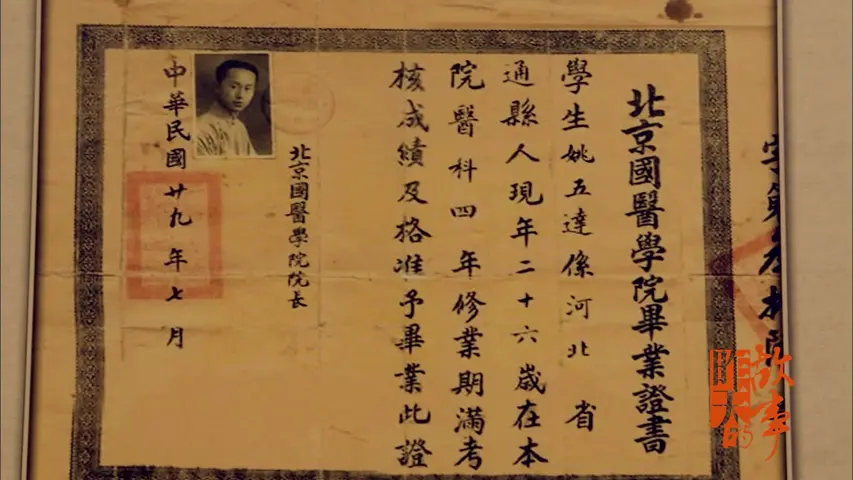 北京國醫學院畢業證書
學生姚五達係河北省
通縣人現年二十六歲在本
院醫科四年修業期滿考
核成績及格准予畢業此證
北京國醫學院院長
中華民國廿九年七月
昨天的故事